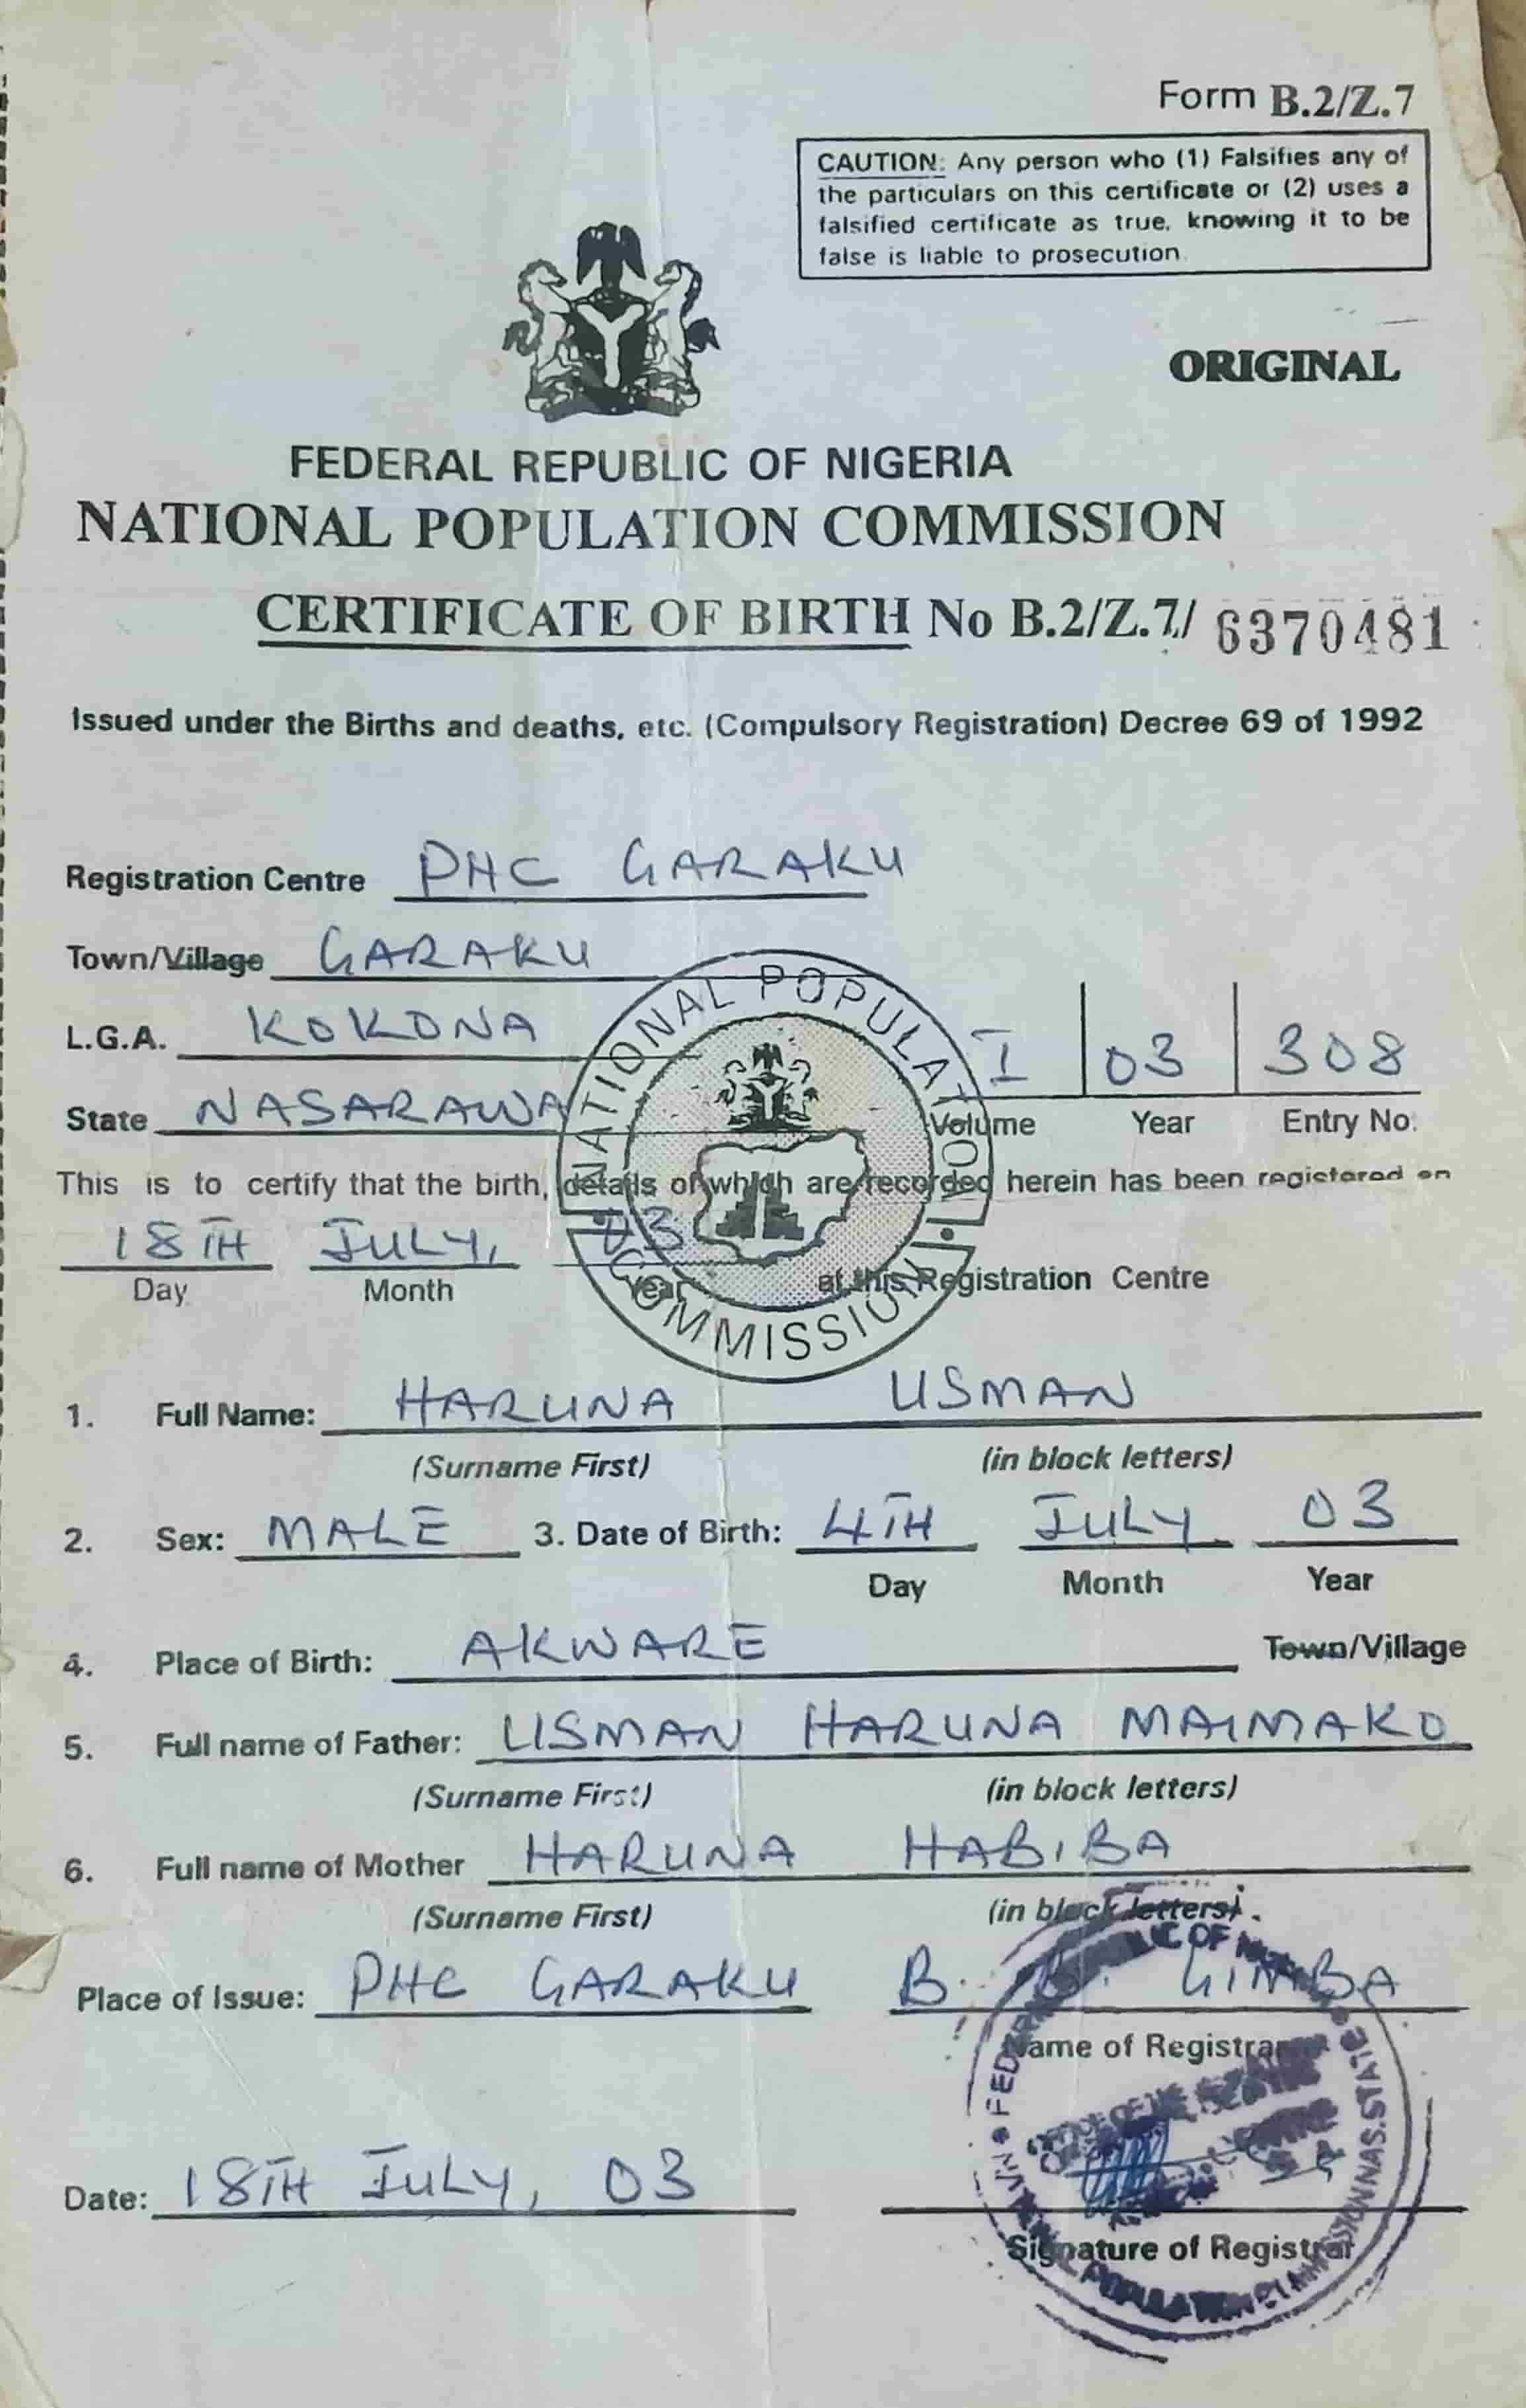 Form B.2/Z.7
CAUTION: Any person who (1) Falsifies any of
the particulars on this certificate or (2) uses a
falsified certificate as true, knowing it to be
false is liable to prosecution.
ORIGINAL
FEDERAL REPUBLIC OF NIGERIA
NATIONAL POPULATION COMMISSION
CERTIFICATE OF BIRTH No B.2/Z.7/ 6370481
Issued under the Births and deaths, etc. (Compulsory Registration) Decree 69 of 1992
Registration Centre PHC GARAKU
Town/Village GARAKU
L.G.A. KOKONA
I 03 308
State NASARAWA
Volume Year Entry No.
NATIONAL POPULATION COMMISSION
This is to certify that the birth, details of which are recorded herein has been registered on
18TH JULY, 03
Day Month Year at this Registration Centre
1. Full Name: HARUNA USMAN
(Surname First) (in block letters)
2. Sex: MALE 3. Date of Birth: 4TH JULY 03
Day Month Year
4. Place of Birth: AKWARE Town/Village
5. Full name of Father: USMAN HARUNA MAIMAKO
(Surname First) (in block letters)
6. Full name of Mother HARUNA HABIBA
(Surname First) (in block letters)
Place of Issue: PHC GARAKU B. GIMBA
Name of Registrar
Date: 18TH JULY, 03
Signature of Registrar
NAS. STATE